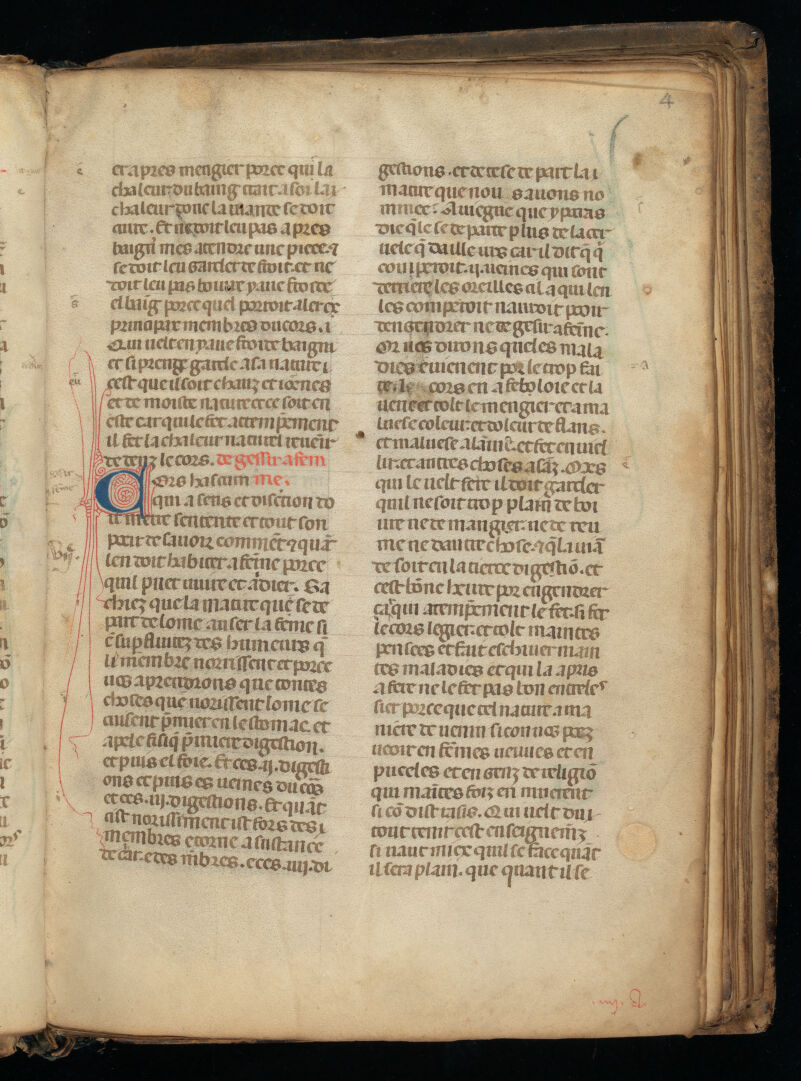 4
et apres mengier porce qui la
chaleur du baing trait a soi lai
chaleur donc la uiande se doit
cuire. Et ne doit leu pas apres
baign mes atendre une piece. ⁊
se doit leu garder de froit. et ne
doit leu pas boiure yaue froide
el baig porce quel porroit aler ex
principax membres du cors. i
Qui uelt en yaue froide baigni
et si prenge garde a sa nature i
cest que il soit chauz et ioenes
et de moiste nature et ce soit en
este car qui le fet attempeement
il fet la chaleur naturel reuenir
dedenz le cors. de gesir a fem
Cors hascuim me.
qui a sens et discrtion do
ie metre sentente et tout son
poeir de sauoir comment ⁊ quāt
len doit habiter a feme porce
quil puet uiure et aidier. Sa
chiez que la matire que se de
part de lome au ser la feme si
ē supfluitez des humeurs q̄
li membre norrissent et porce
uos aprendrons que toutes
choses que norissent lome se
cuisent p̄mier en lestomac. et
apele fisiq̄ p̄miere digestion.
et puis el foie. Et ces .ij. digesti
ons et puis es ueines du cors
et ces .iij. digestions. Et quāt
cist norissiment ist fors des i
membres etorne a sustance
de car. e des mēbres. e ces .iiij. di
gestions. et de ce se de part la i
matire que nou sauons no
mmee: Auiegne que ypocras
die q̄ le se de parte plus de la cer
uele q̄ dailleurs car il dit q̄ q̄
coupperoit .ij. ueines qui sont
derriere les oreilles al a qui len
les comperoit nauroit pooir
dengendrer ne de gesir a feme.
Or uos dirons queles mala
dies euienent por le trop fai
re. le cors en afebloie et la
ueue et tolt le mengier et a ma
luese coleur. et doleur de flans.
et maluese alaine. et fet enuiel
lir. et autres choses asaz. Mes
qui le uelt fere il doit garder
quil ne soit trop plain de boi
ure ne de mangier. ne de ieu
me ne dautre chose. ⁊ q̄ la uiā
de soit en la tierce digestiō. et
cest bōne heure por engendrer
car qui atempeement le fet. si fet
le cors legier. et tolt maintes
pensees et fait eschiuer main
tes maladies et qui la apris
a fere ne le fet pas bon entrele
sier porce que cel nature a ma
niere de uenin si con uos poez
ueoir en femes ueuues et en
puceles et en genz de religiō
qui maītes foiz en muerent
si cō dist rasis. Qui uelt du i
tout tenir cest enseignemz
si uaut miex quil se face quāt
il sera plain. que quant il se